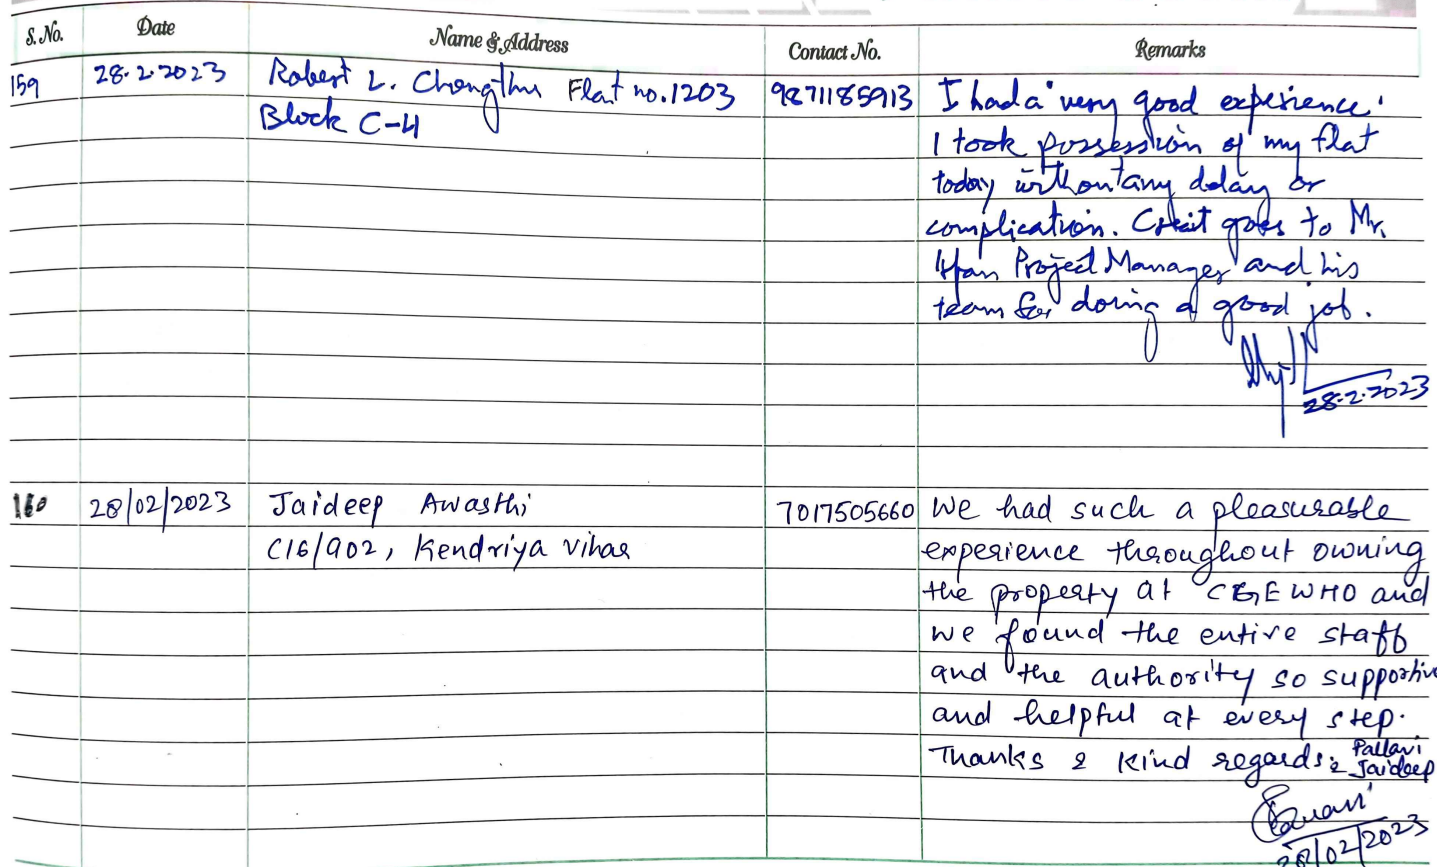 S. No. Date Name & Address Contact No. Remarks
159 28.2.2023 Robert L. Chongthu Flat no. 1203 9871185913 I had a very good experience.
Block C-4
I took possession of my flat
today without any delay or
complication. Credit goes to Mr.
Irfan Project Manager and his
team for doing a good job.
28.2.2023
160 28/02/2023 Jaideep Awasthi 7017505660 We had such a pleasurable
C16/902, Kendriya Vihar experience throughout owning
the property at CGEWHO and
we found the entire staff
and the authority so supportive
and helpful at every step.
Thanks & Kind regards: Pallavi
& Jaideep
28/02/2023